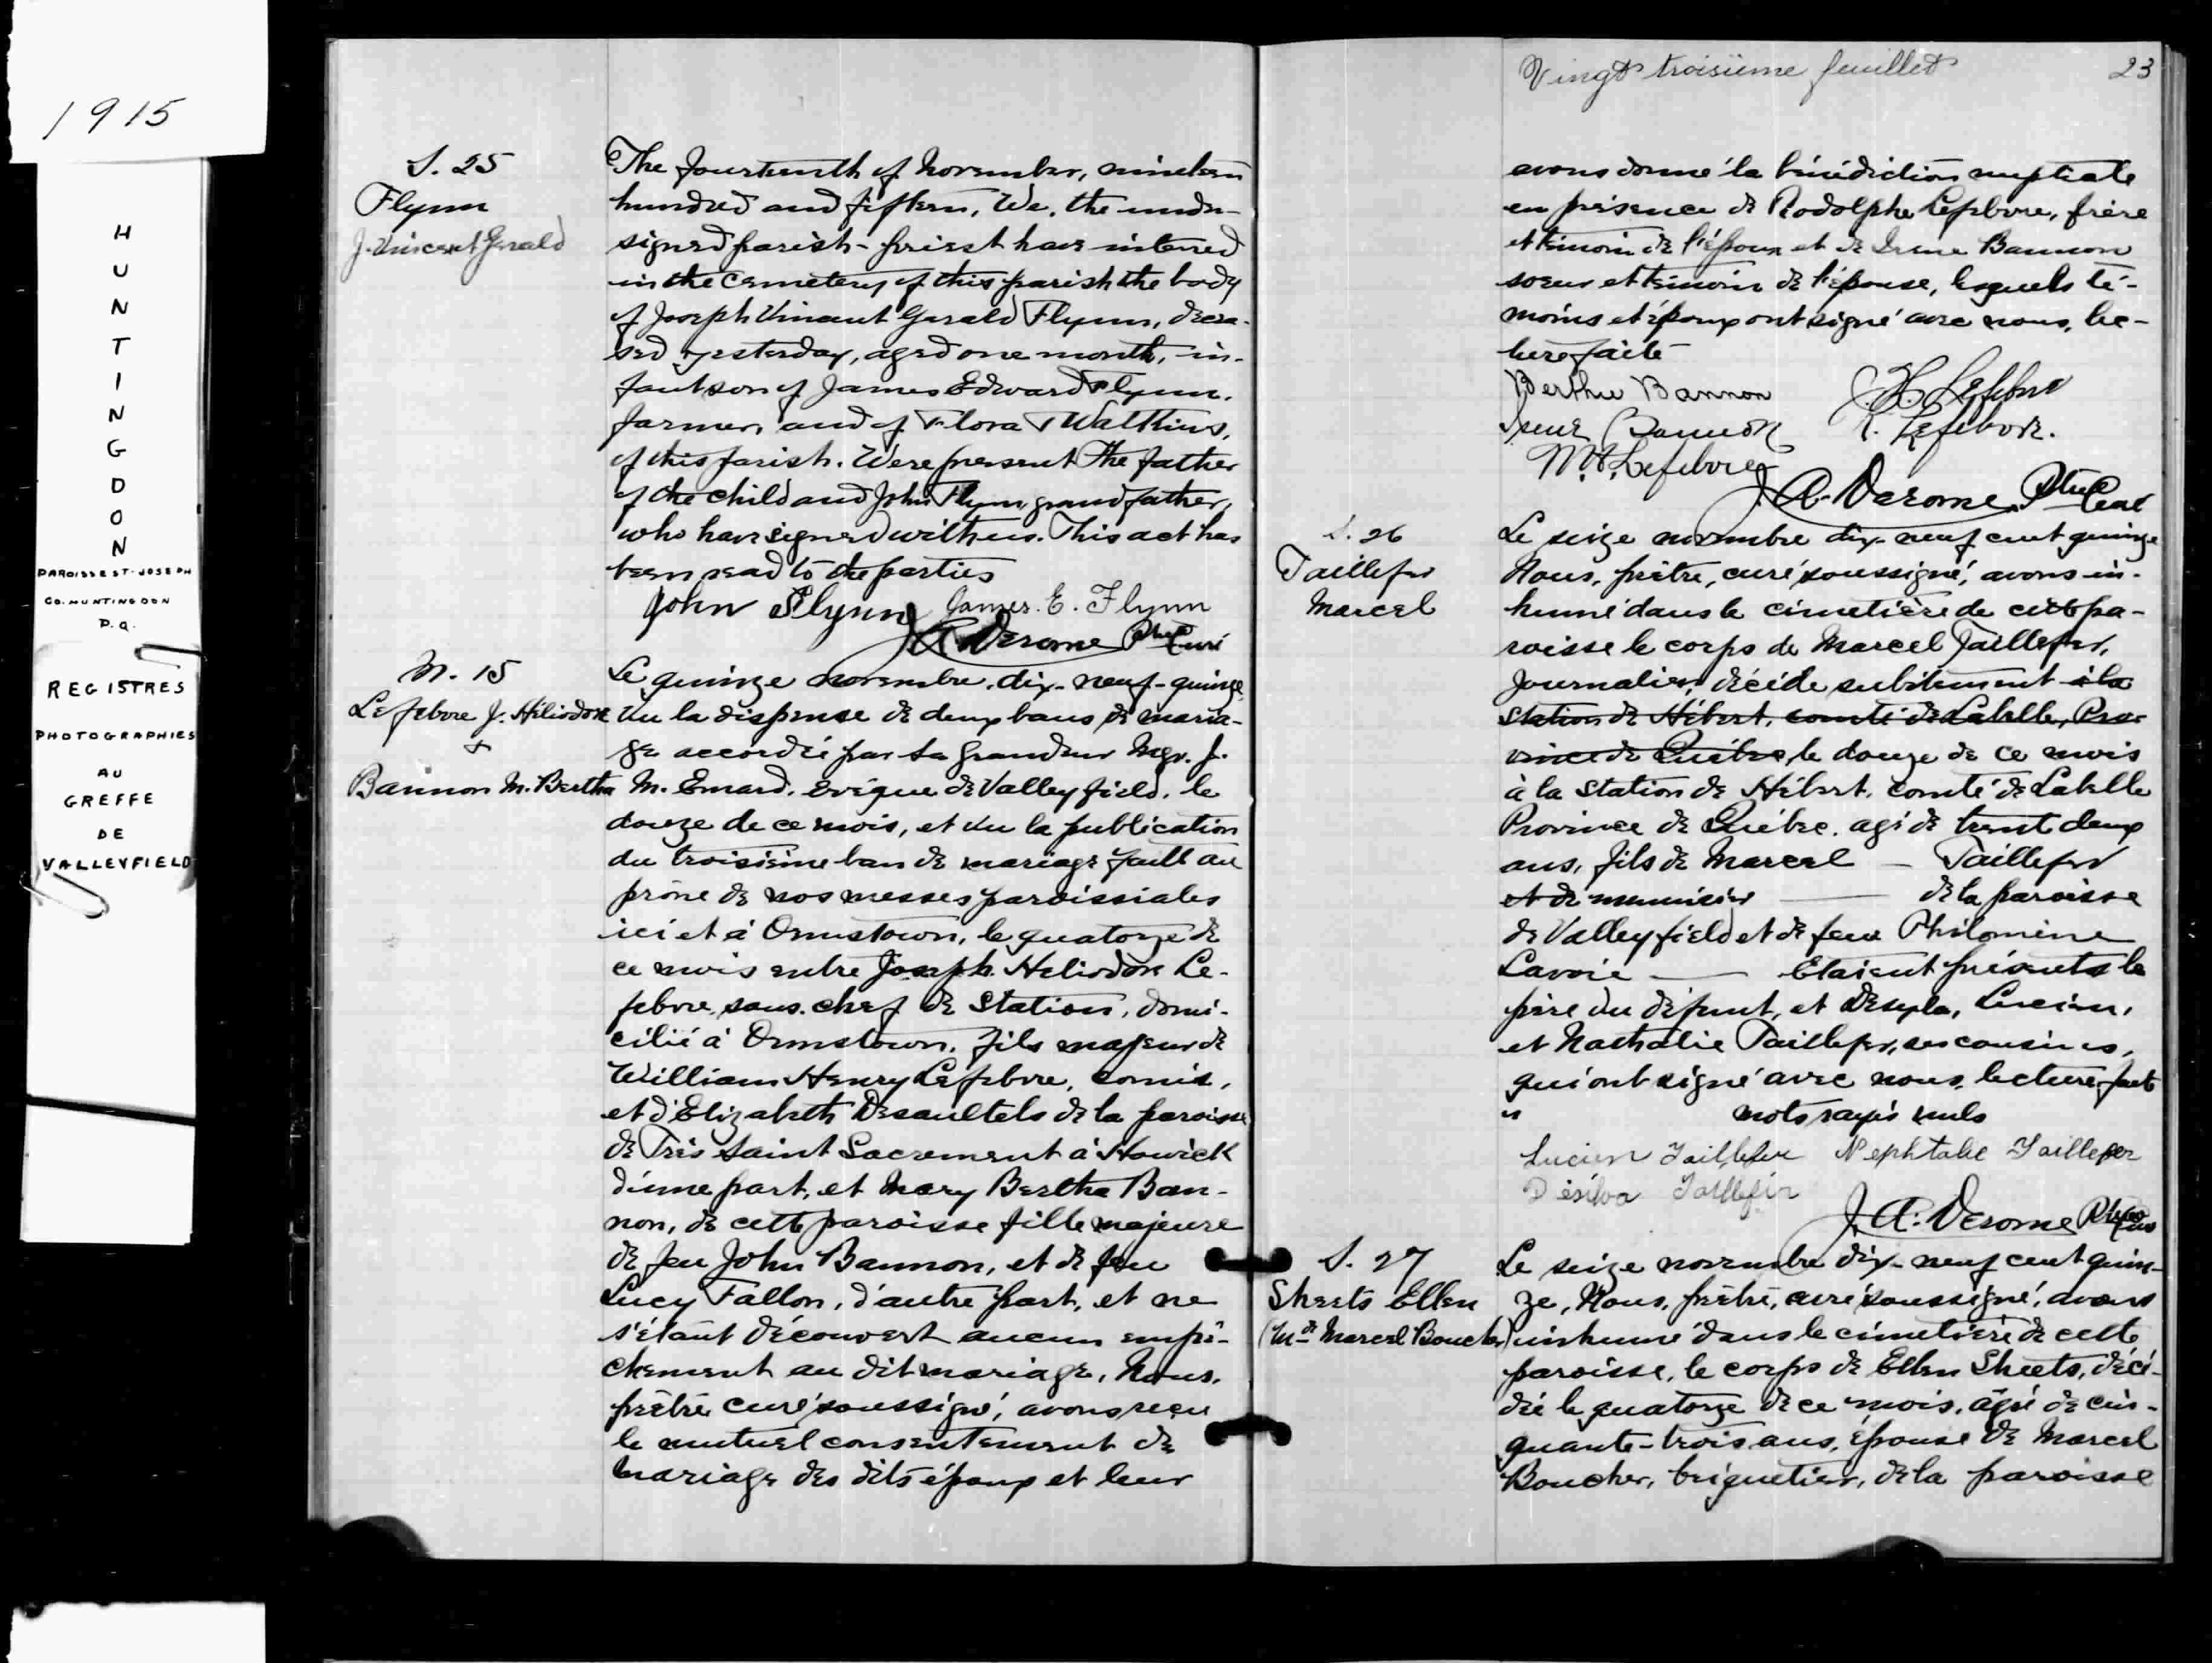 1915
HUNTINGDON
PAROISSE ST-JOSEPH
CO. HUNTINGDON
P.Q.
REGISTRES
PHOTOGRAPHIES
AU
GREFFE
DE
VALLEYFIELD
S. 25
Flynn
J. Vincent Gerald
The fourteenth of November, nineteen
hundred and fifteen, We, the under-
signed parish-priest have interred
in the cemetery of this parish the body
of Joseph Vincent Gerald Flynn, decea-
sed yesterday, aged one month, in-
fant son of James Edward Flynn,
farmer, and of Flora Watkins,
of this parish. Were present the father
of the child and John Flynn, grandfather,
who have signed with us. This act has
been read to the parties
John Flynn James. E. Flynn
J. A. Derome Ptre Curé
M. 15
Lefebvre J. Héliodore
+
Bannon M. Bertha
Le quinze novembre, dix-neuf-quinze
Vu la dispense de deux bans de maria-
ge accordée par Sa Grandeur Mgr. J.
M. Emard, évêque de Valleyfield, le
douze de ce mois, et vu la publication
du troisième ban de mariage faite au
prône de nos messes paroissiales
ici et à Ormstown, le quatorze de
ce mois entre Joseph Heliodore Le-
febvre, sous-chef de Station, domi-
cilié à Ormstown, fils majeur de
William Henry Lefebvre, comis,
et d'Elizabeth Desaultels de la paroisse
de Très Saint Sacrement à Howick
d'une part, et Mary Bertha Ban-
non, de cette paroisse fille majeure
de feu John Bannon, et de feu
Lucy Fallon, d'autre part, et ne
s'étant découvert aucun empê-
chement au dit mariage, Nous,
prêtre curé soussigné, avons reçu
le mutuel consentement de
mariage des dits époux et leur
Vingt troisième feuillet 23
avons donné la bénédiction nuptiale
en présence de Rodolphe Lefebvre, frère
et témoin de l'époux et de Irene Bannon
soeur et témoin de l'épouse, lesquels té-
moins et époux ont signé avec nous, lec-
ture faite
Bertha Bannon J. H. Lefebvre
Irene Bannon R. Lefebvre.
W. H. Lefebvre
J. A. Derome Ptre Curé
S. 26
Taillefer
Marcel
Le seize novembre dix-neuf cent quinze
Nous, prêtre, curé soussigné, avons in-
humé dans le cimetière de cette pa-
roisse le corps de Marcel Taillefer,
Journalier, décédé subitement à la
Station de Hébert, comté de Labelle, Pro-
vince de Québec, le douze de ce mois
à la Station de Hébert, comté de Labelle
Province de Québec, agé de trente deux
ans, fils de Marcel — Taillefer
et de menuisier — de la paroisse
de Valleyfield et de feue Philomène
Lavoie — Etaient présents le
père du défunt, et Lucien,
et Nathalie Taillefer, ses cousins,
qui ont signé avec nous, lecture faite
mots rayés nuls
Lucien Taillefer Nephtalie Taillefer
Désilva Taillefer
J. A. Derome Ptre Curé
S. 27
Sheets Ellen
(Mde Marcel Boucher)
Le seize novembre dix-neuf cent quin-
ze, Nous, prêtre, curé soussigné, avons
inhumé dans le cimetière de cette
paroisse, le corps de Ellen Sheets, décé-
dée le quatorze de ce mois, âgée de cin-
quante-trois ans, épouse de Marcel
Boucher, briquetier, de la paroisse